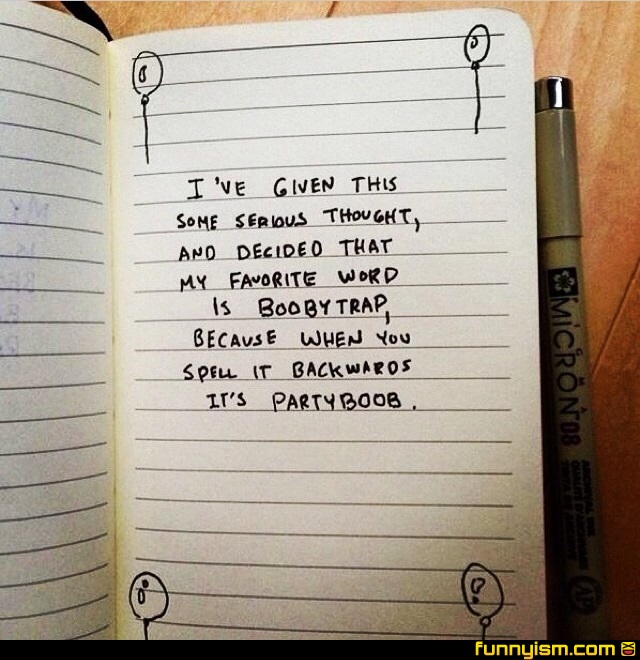 I'VE GIVEN THIS
SOME SERIOUS THOUGHT,
AND DECIDED THAT
MY FAVORITE WORD
IS BOOBYTRAP,
BECAUSE WHEN YOU
SPELL IT BACKWARDS
IT'S PARTYBOOB.
MICRON 08
funnyism.com